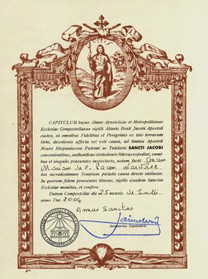 CAPITULUM hujus Almae Apostolicae et Metropolitanae
Ecclesiae Compostellanae sigilli Altaris Beati Jacobi Apostoli
custos, ut omnibus Fidelibus et Peregrinis ex toto terrarum
Orbe, devotionis affectu vel voti causa, ad limina Apostoli
Nostri Hispaniarum Patroni ac Tutelaris SANCTI JACOBI
convenientibus, authenticas visitationis litteras expediat, omni-
bus et singulis praesentes inspecturis, notum facit:
hoc sacratissimum Templum pietatis causa devote visitasse.
In quorum fidem praesentes litteras, sigillo ejusdem Sanctae
Ecclesiae munitas, ei confero.
Datum Compostellae die 25 mensis
anno Dni 2004
Annus Sanctus